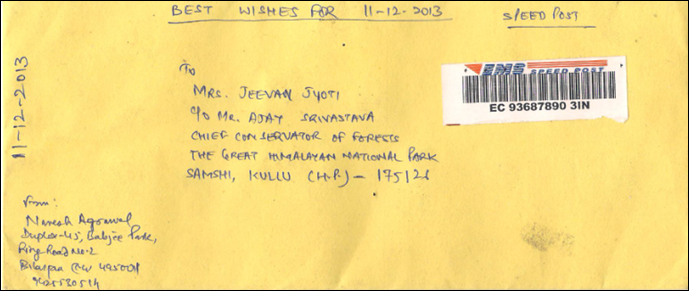 BEST WISHES FOR 11-12-2013
SPEED POST
11-12-2013
To
MRS. JEEVAN JYOTI
C/O MR. AJAY SRIVASTAVA
CHIEF CONSERVATOR OF FORESTS
THE GREAT HIMALAYAN NATIONAL PARK
SAMSHI, KULLU (H.P.) –
EMS SPEED POST
EC 93687890 3IN
From:
Naresh Agrawal
Duplex-45, Park,
Ring Road No-2